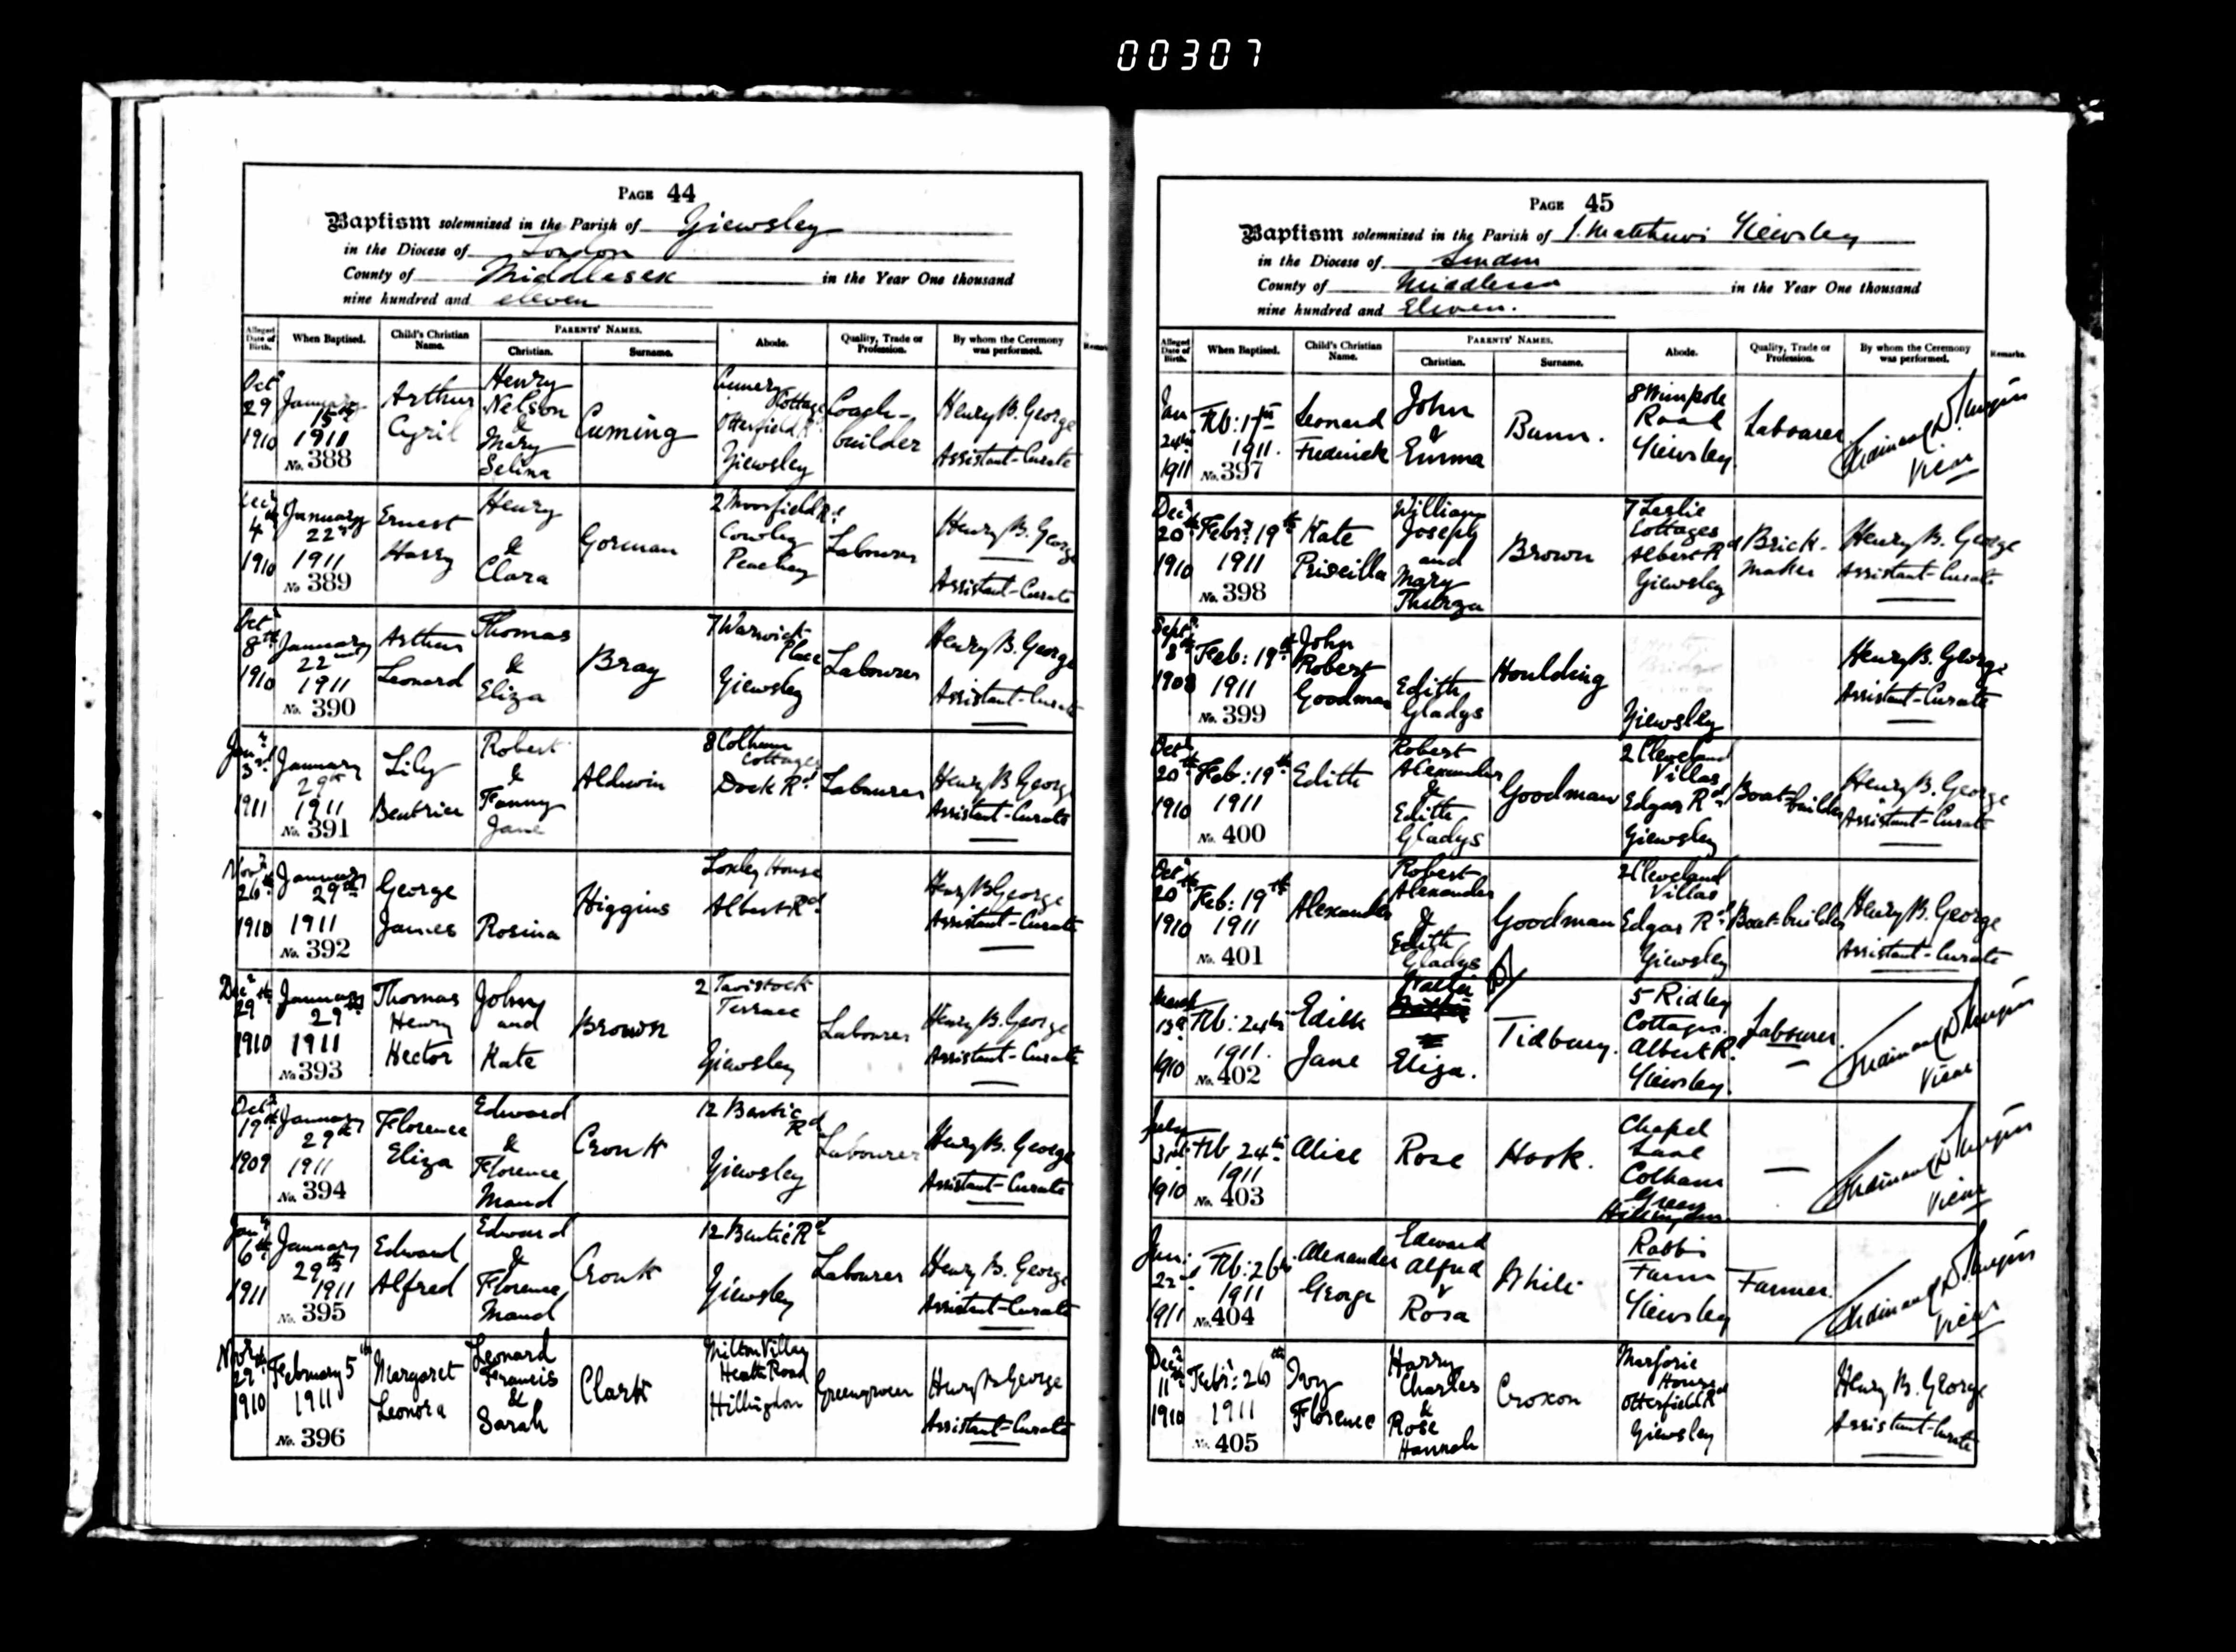 00307
PAGE 44
Baptism solemnized in the Parish of Yiewsley
in the Diocese of London
County of Middlesex in the Year One thousand
nine hundred and eleven
Alleged Date of Birth.
When Baptised.
Child's Christian Name.
PARENTS' NAMES.
Christian.
Surname.
Abode.
Quality, Trade or Profession.
By whom the Ceremony was performed.
Oct 29 1910
January 15th 1911
No. 388
Arthur Cyril
Henry Nelson & Mary Selina
Cuming
Cottage Otterfield Rd Yiewsley
Coach-builder
Henry B. George Assistant-Curate
Decr 4th 1910
January 22nd 1911
No. 389
Ernest Harry
Henry & Clara
Gorman
2 Moorfield Rd Cowley Peachey
Labourer
Henry B. George Assistant-Curate
Octr 8th 1910
January 22nd 1911
No. 390
Arthur Leonard
Thomas & Eliza
Bray
7 Warwick Place Yiewsley
Labourer
Henry B. George Assistant-Curate
Jany 3rd 1911
January 29th 1911
No. 391
Lily Beatrice
Robert & Fanny Jane
Aldwin
8 Colham Cottages Dock Rd
Labourer
Henry B George Assistant-Curate
Novr 26th 1910
January 29th 1911
No. 392
George James
Rosina
Higgins
Loxley House Albert Rd
Henry B George Assistant-Curate
Decr 29th 1910
January 29th 1911
No. 393
Thomas Henry Hector
John and Kate
Brown
2 Tavistock Terrace Yiewsley
Labourer
Henry B. George Assistant-Curate
Octr 19th 1909
January 29th 1911
No. 394
Florence Eliza
Edward & Florence Maud
Cronk
12 Rd Yiewsley
Labourer
Henry B. George Assistant-Curate
Jany 6th 1911
January 29th 1911
No. 395
Edward Alfred
Edward & Florence Maud
Cronk
12 Rd Yiewsley
Labourer
Henry B. George Assistant-Curate
Novr 29th 1910
February 5th 1911
No. 396
Margaret Leonora
Leonard Francis & Sarah
Clark
Milton Villas Heath Road Hillingdon
Greengrocer
Henry B George Assistant-Curate
PAGE 45
Baptism solemnized in the Parish of S. Matthew's Yiewsley
in the Diocese of London
County of Middlesex in the Year One thousand
nine hundred and Eleven.
Alleged Date of Birth.
When Baptised.
Child's Christian Name.
PARENTS' NAMES.
Christian.
Surname.
Abode.
Quality, Trade or Profession.
By whom the Ceremony was performed.
Remarks.
Jan 24th 1911
Feb: 17th 1911.
No. 397
Leonard Frederick
John & Emma
Bunn.
8 Wimpole Road Yiewsley.
Labourer
Vicar
Decr 20th 1910
Febr: 19th 1911
No. 398
Kate Priscilla
William Joseph and Mary Thurza
Brown
7 Leslie Cottages Albert Rd Yiewsley
Brick-maker
Henry B. George Assistant-Curate
Septr 8th 1908
Feb: 19th 1911
No. 399
John Robert Goodman
Edith Gladys
Houlding
Yiewsley
Henry B. George Assistant-Curate
Octr 20th 1910
Feb: 19th 1911
No. 400
Edith
Robert Alexander & Edith Gladys
Goodman
2 Cleveland Villas Edgar Rd Yiewsley
Boat-builder
Henry B. George Assistant-Curate
Octr 20th 1910
Feb: 19th 1911
No. 401
Alexander
Robert Alexander & Edith Gladys
Goodman
2 Cleveland Villas Edgar Rd Yiewsley
Boat-builder
Henry B. George Assistant-Curate
March 1910
Feb: 24th 1911.
No. 402
Edith Jane
Walter & Eliza.
Tidbury.
5 Ridley Cottages. Albert R. Yiewsley.
Labourer.
Vicar
July 3rd 1910
Feb 24th 1911
No. 403
Alice
Rose
Hook.
Chapel Lane Colham Green Hillingdon
—
Vicar
Jan: 22nd 1911
Feb: 26th 1911
No. 404
Alexander George
Edward Alfred & Rosa
White
Rabbs Farm Yiewsley
Farmer.
Vicar
Decr 11th 1910
Febr: 26th 1911
No. 405
Ivy Florence
Harry Charles & Rose Hannah
Croxon
Marjorie House Otterfield Rd Yiewsley
Henry B. George Assistant-Curate